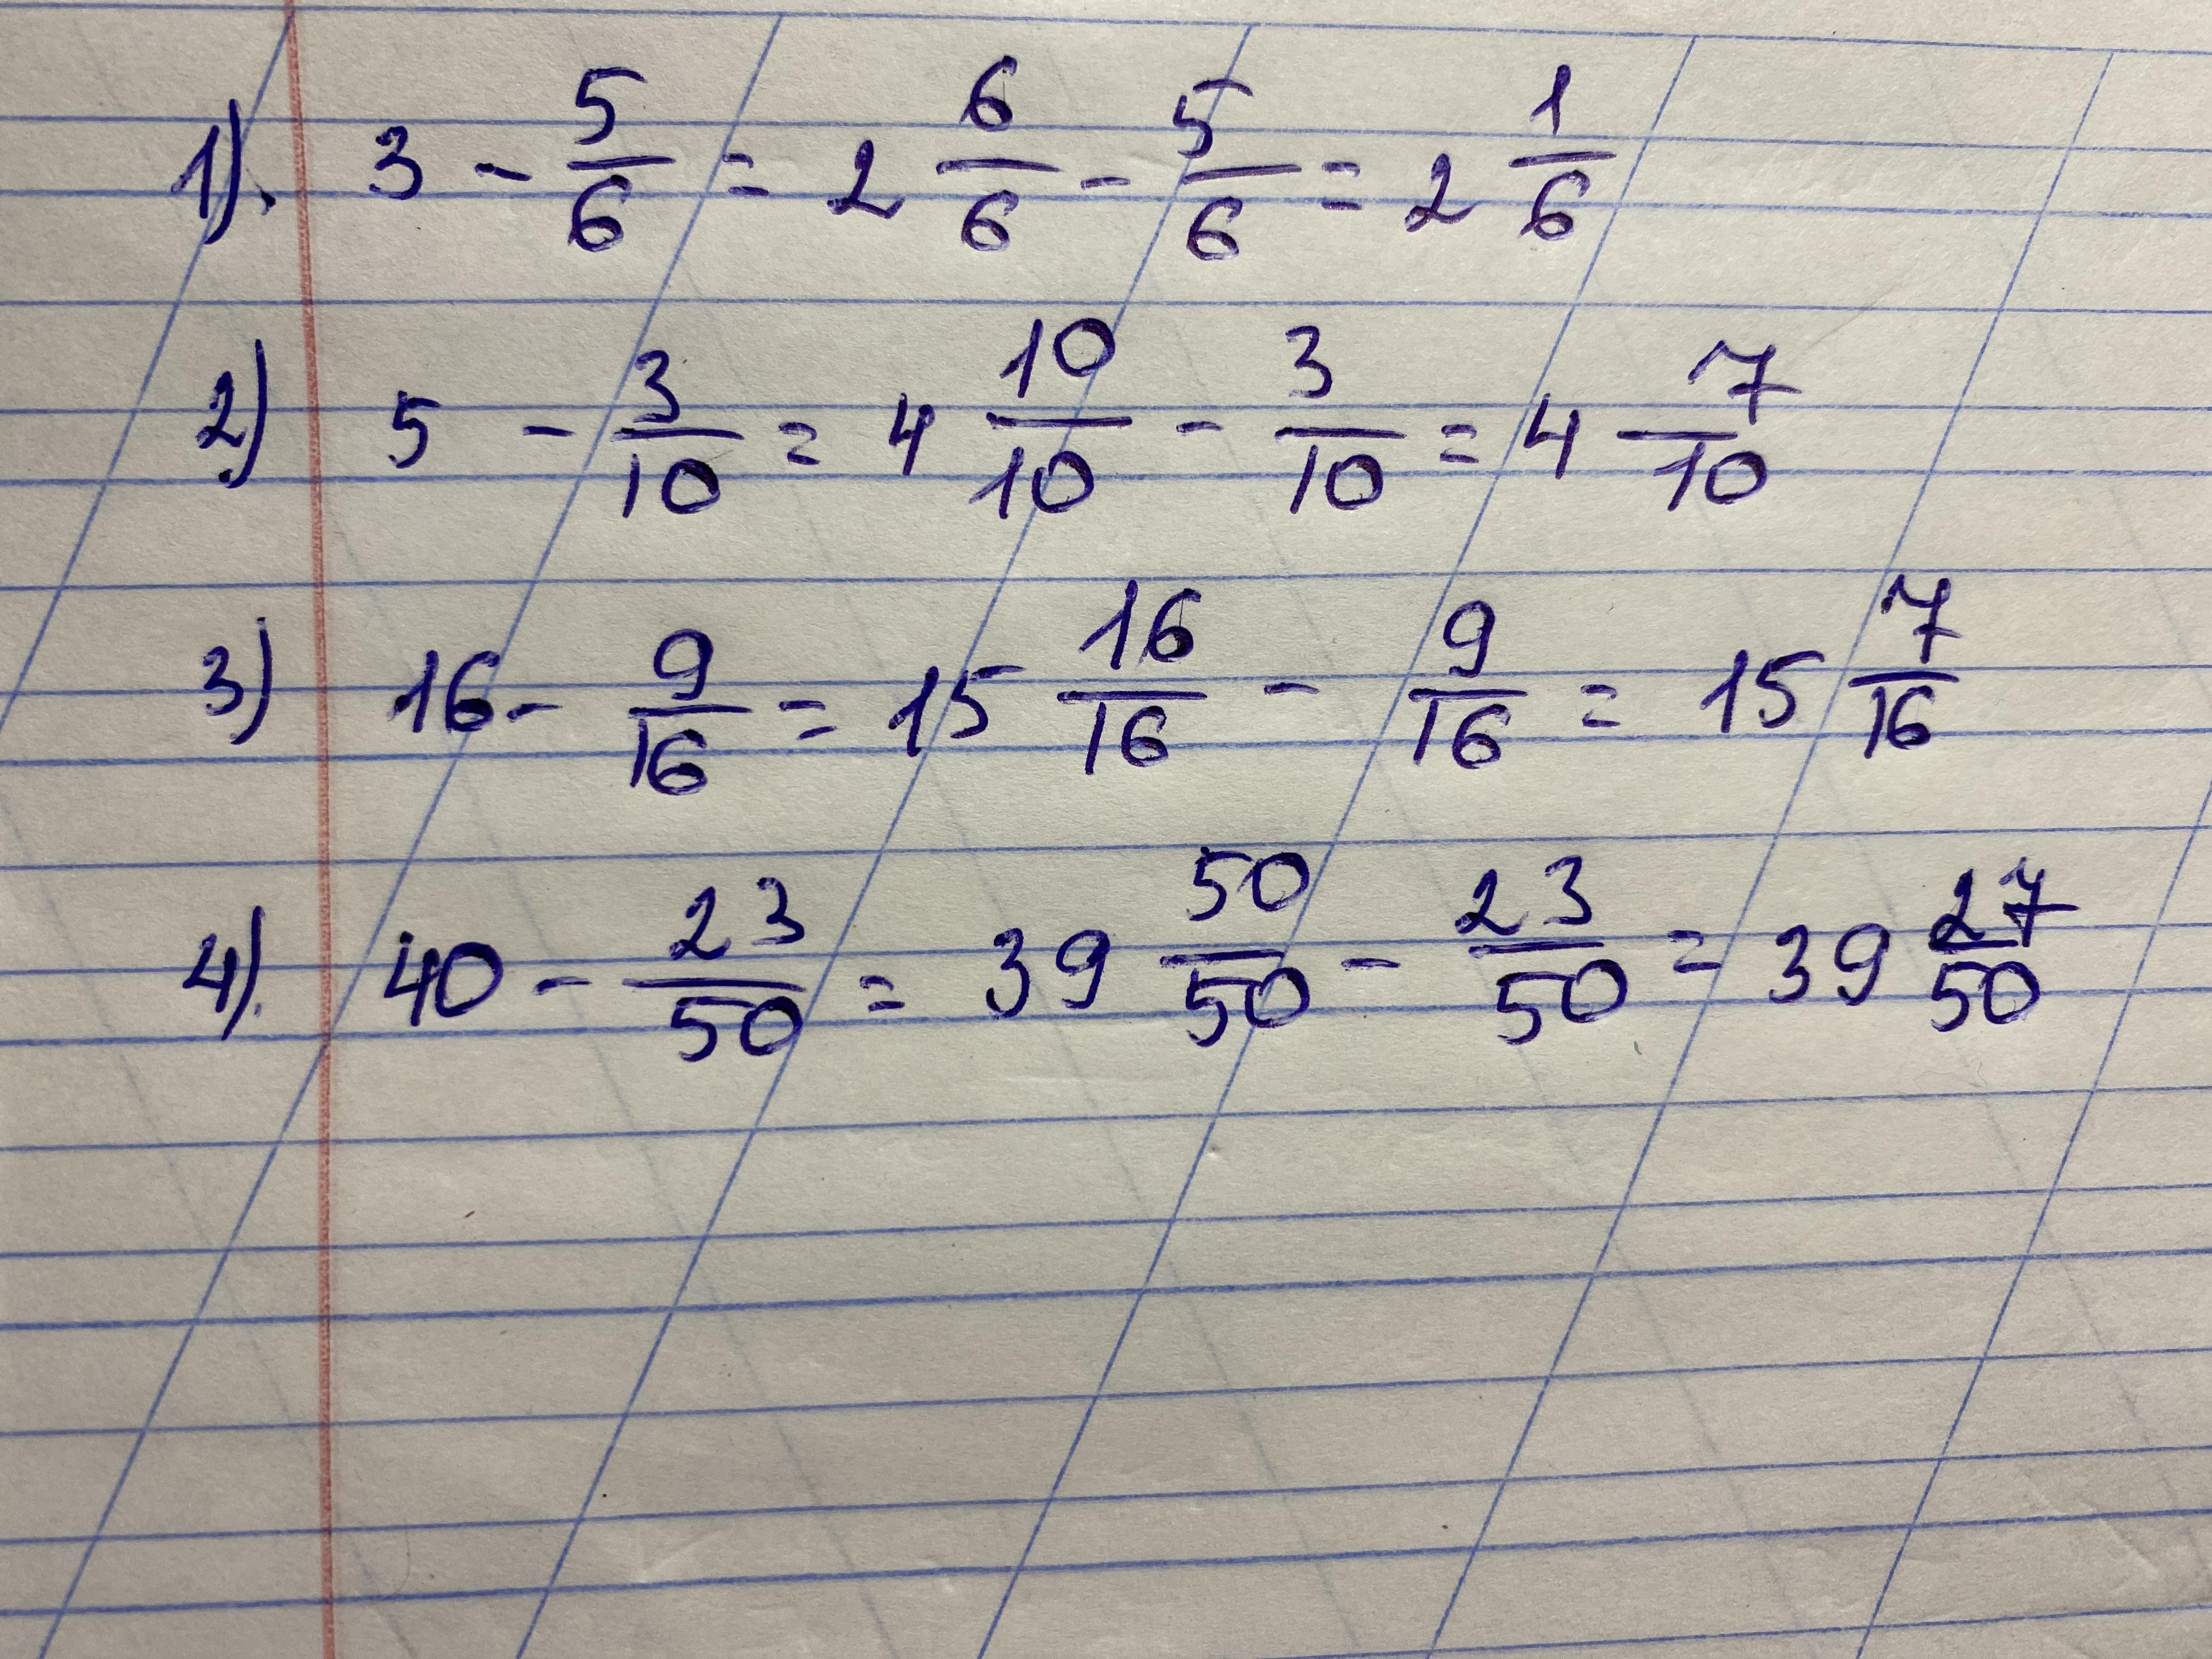 1). 3 - 5/6 = 2 6/6 - 5/6 = 2 1/6
2) 5 - 3/10 = 4 10/10 - 3/10 = 4 7/10
3) 16 - 9/16 = 15 16/16 - 9/16 = 15 7/16
4). 40 - 23/50 = 39 50/50 - 23/50 = 39 27/50